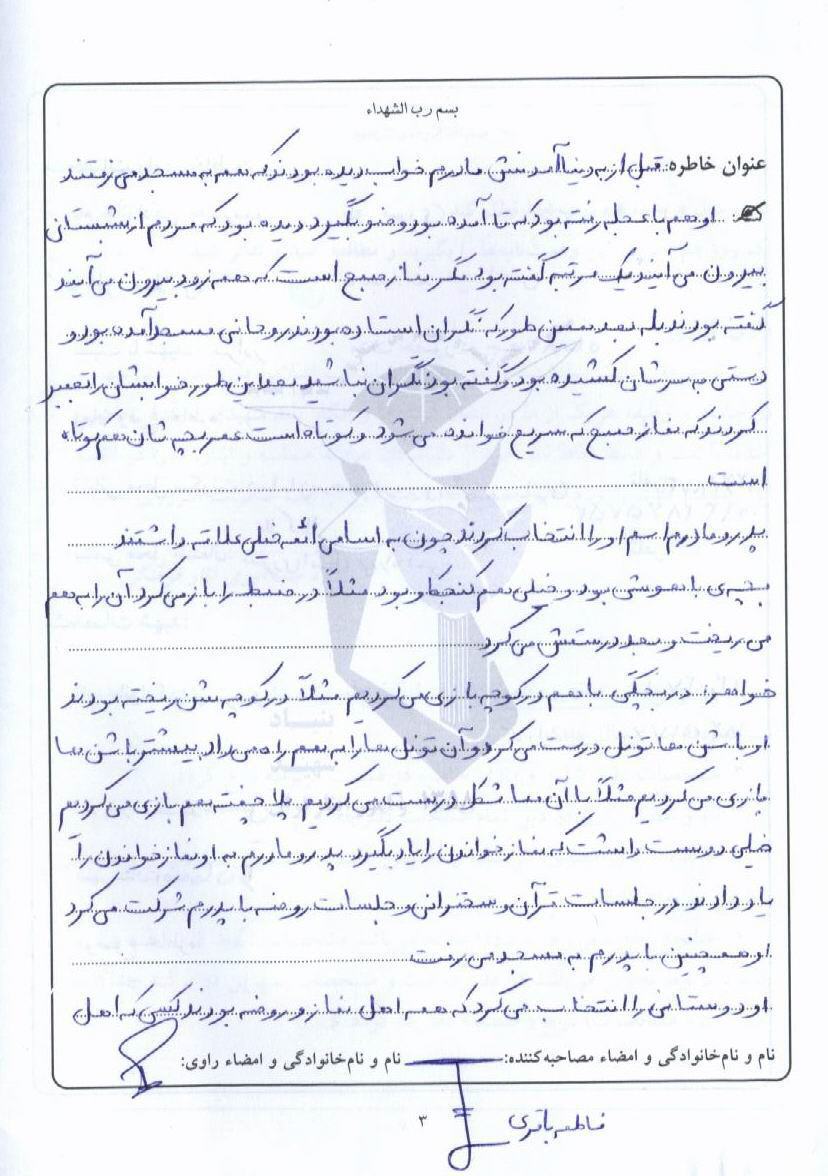 بسم رب الشهداء
عنوان خاطره: قبل از به دنیا آمدنش مادرم خواب دیده بودند که همه به مسجد می رفتند
که او هم با عجله رفته بود که تا آمده بود وضو بگیرد دیده بود که مردم از شبستان
بیرون می آیند یک مرتبه گفته بود مگر نماز صبح است که همه زود بیرون می آیند
گفته بودند بله بعد همین طور که نگران ایستاده بودند روحانی مسجد آمده بود و
دستی به سرشان کشیده بود و گفته بود نگران نباشد بعد این طور خوابشان را تعبیر
کردند که نماز صبح که سریع خوانده می شود و کوتاه است عمر بچه شان هم کوتاه
است
پدر و مادرم اسم او را انتخاب کردند چون به اسامی ائمه خیلی علاقه داشتند
بچه ی باهوشی بود و خیلی هم کنجکاو بود مثلاً در ضبط را باز می کرد آن را به هم
می ریخت و بعد درستش می کرد
خواهر: در بچگی با هم در کوچه بازی می کردیم مثلاً در کوچه شن ریخته بودند
او با شن ها تونل درست می کرد و آن تونل ها را به هم راه می داد بیشتر با شن ها
بازی می کردیم مثلاً با آن ها شکل درست می کردیم پلا جفته هم بازی می کردیم
خیلی دوست داشت که نماز خواندن را یاد بگیرد پدر و مادرم به او نماز خواندن را
یاد دادند در جلسات قرآن و سخنرانی و جلسات روضه با پدرم شرکت می کرد
او همچنین با پدرم به مسجد می رفت
او دوستانی را انتخاب می کرد که همه اهل نماز و روضه بودند کسی که اهل
نام و نام‌خانوادگی و امضاء مصاحبه‌کننده: نام و نام‌خانوادگی و امضاء راوی:
فاطمه باقری
۳